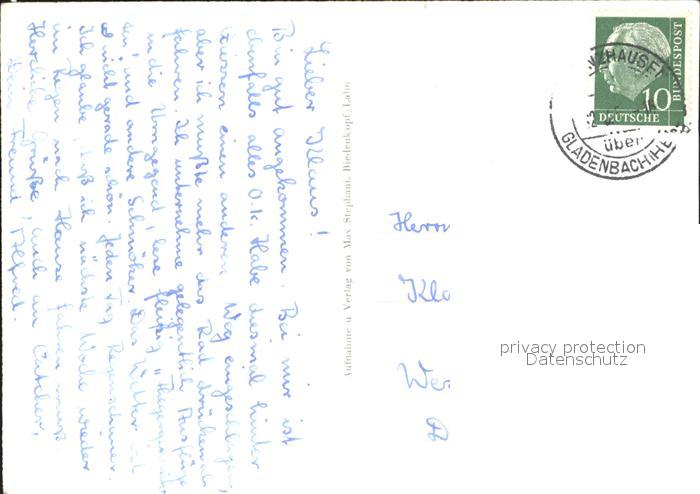 Lieber Klaus!
Bin gut angekommen. Bei mir ist
ebenfalls alles O.K. Habe diesmal hinter
Giessen einen anderen Weg eingeschlagen,
aber ich mußte mehr das Rad drücken als
fahren. Ich unternehme gelegentlich Ausflüge
in die Umgegend, lese fleißig
und andere Schmöker. Das Wetter ist
nicht gerade schön. Jeden Tag Regenschauer.
Ich glaube, daß ich nächste Woche wieder
im Regen nach Hause fahren muß.
Herzliche Grüße, auch an
Dein Freund Alfred.
Aufnahme u. Verlag von Max Stephani, Biedenkopf, Lahn
Herrn
Kla
We
DEUTSCHE
BUNDESPOST
10
über
GLADENBACH
privacy protection
Datenschutz